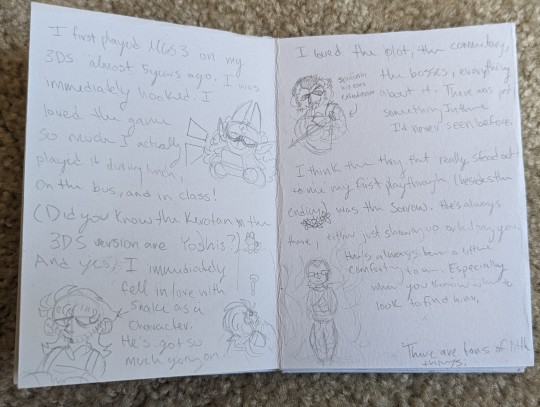 I first played MGS3 on my
3DS almost 5 years ago. I was
immediately hooked. I
loved the game
so much I actually
played it during lunch,
on the bus, and in class!
(Did you know the Kerotan in the
3DS version are Yoshis?)
And yes, I immediately
fell in love with
Snake as a
character.
He's got so
much going on
I loved the plot, the commentary,
the bosses, everything
about it. There was just
something in there
I'd never seen before.
I think the thing that really stood out
to me my first playthrough (besides the
ending) was the Sorrow. He's always
there, either just showing up or helping you.
He's always been a little
comforting to me. Especially
when you know where to
look to find him.
There are tons of little
things.